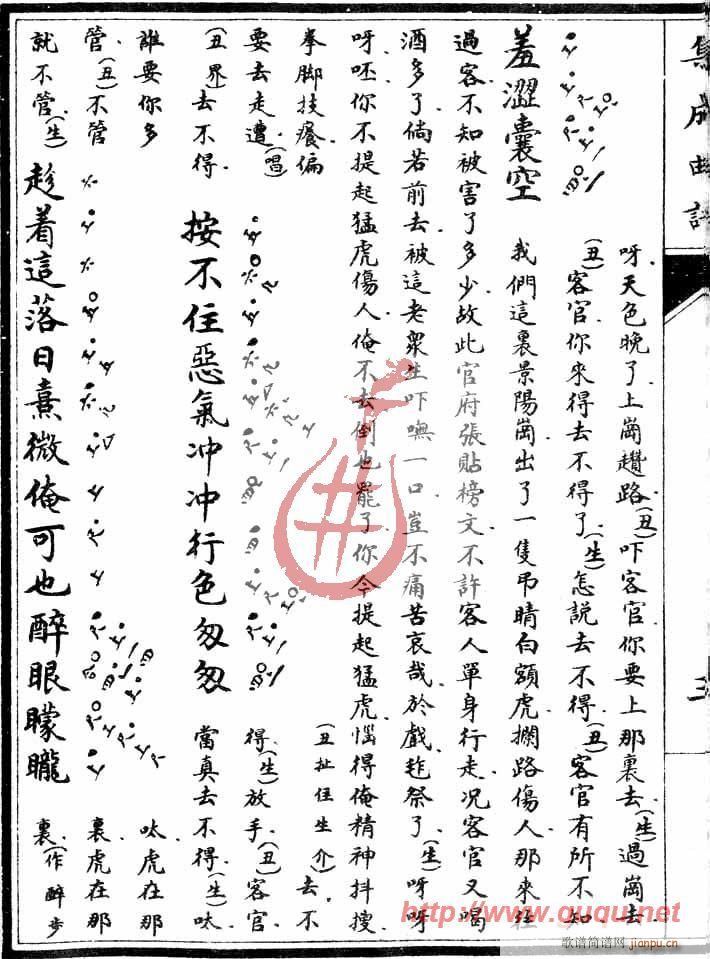 集成曲譜
三
羞澀囊空
呀天色晚了上崗趲路(丑)吓客官你要上那裏去(生)過崗去
(丑)客官你來得去不得了(生)怎說去不得(丑)客官有所不知
我們這裏景陽崗出了一隻弔睛白額虎攔路傷人那來往
過客不知被害了多少故此官府張貼榜文不許客人單身行走况客官又喝
酒多了倘若前去被這老衆生吓嘸一口豈不痛苦哀哉於戲
祭了(生)呀呀
呀呸你不提起猛虎傷人俺不去倒也罷了你今提起猛虎惱得俺精神抖擻
拳脚技癢偏
要去走遭(唱)
(丑扯住生介)去不
得(生)放手(丑)客官
(丑界)去不得
按不住惡氣冲冲行色匆匆
當真去不得(生)呔
誰要你多
管(丑)不管
就不管(生)
趁着這落日熹微俺可也醉眼矇矓
呔虎在那
裏虎在那
裏(作醉步
http://www.guqu.net
歌谱简谱网
jianpu.cn